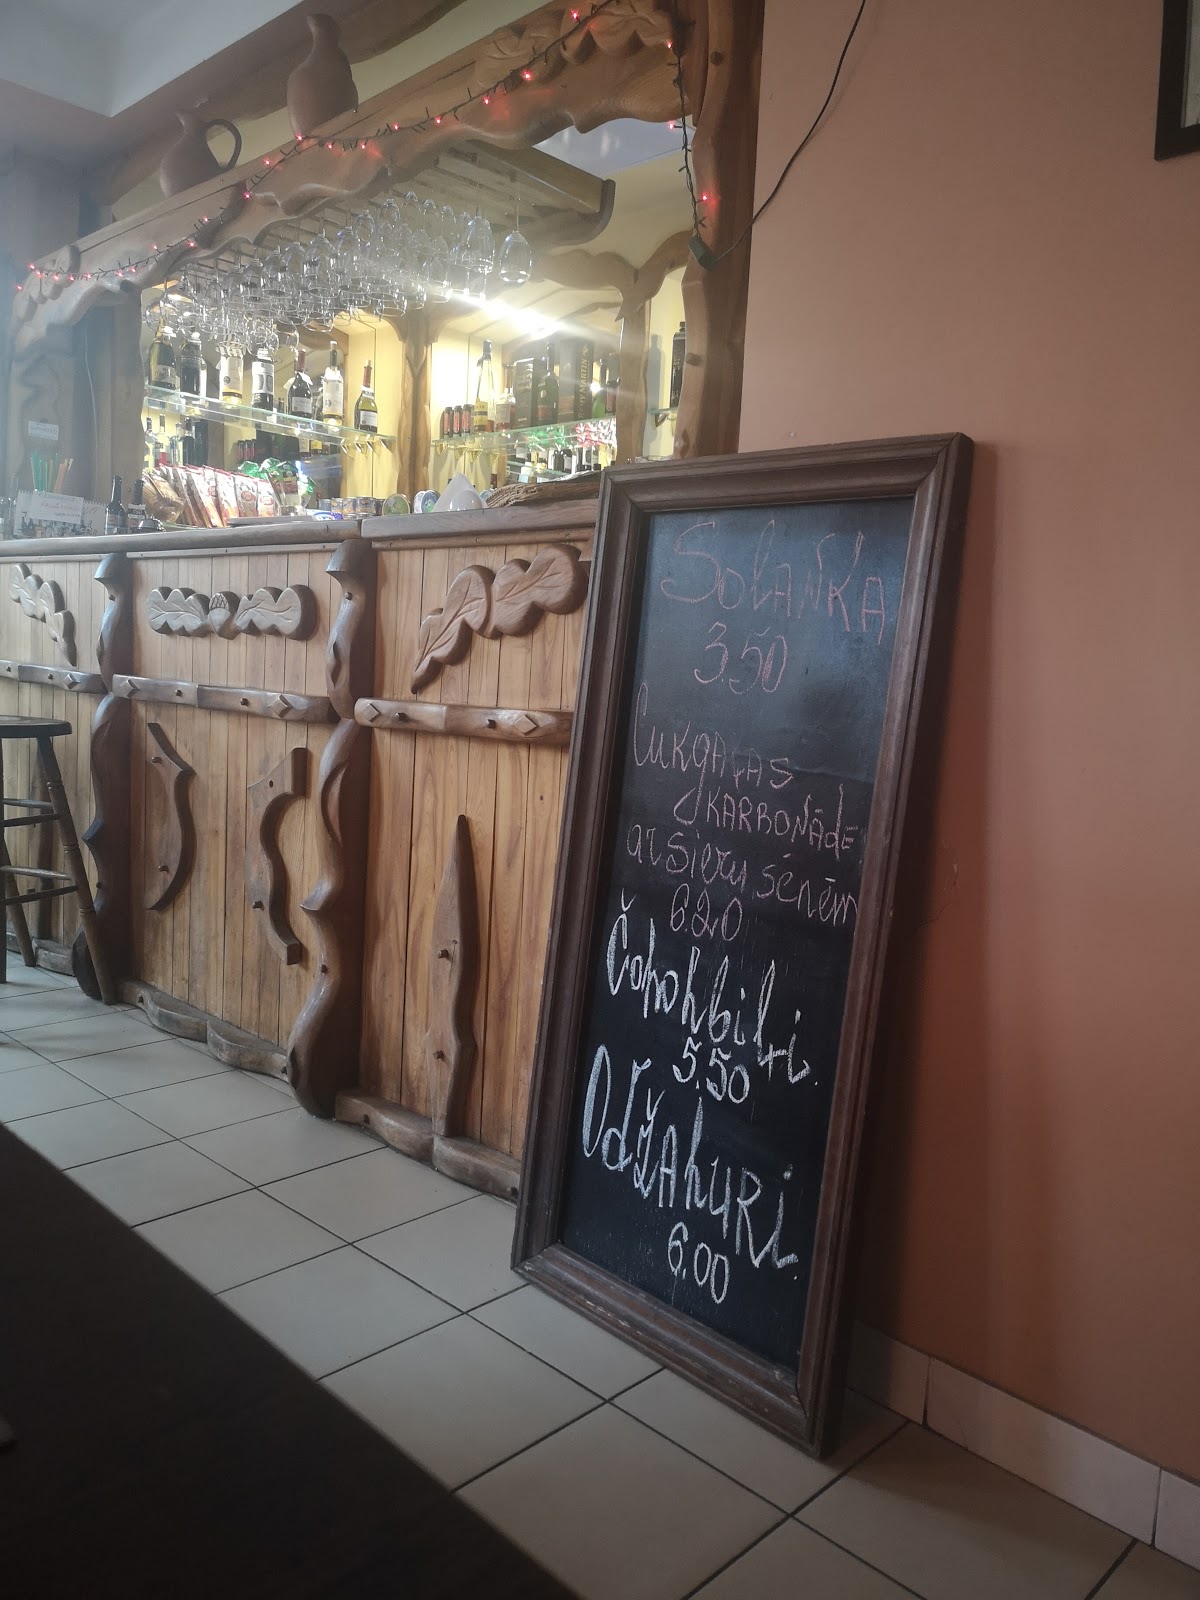 Soļaņka
3.50
Cukgaļas
karbonāde
ar sieru sēnēm
6.20
Čohohbili.
5.50
Odžahuri.
6.00